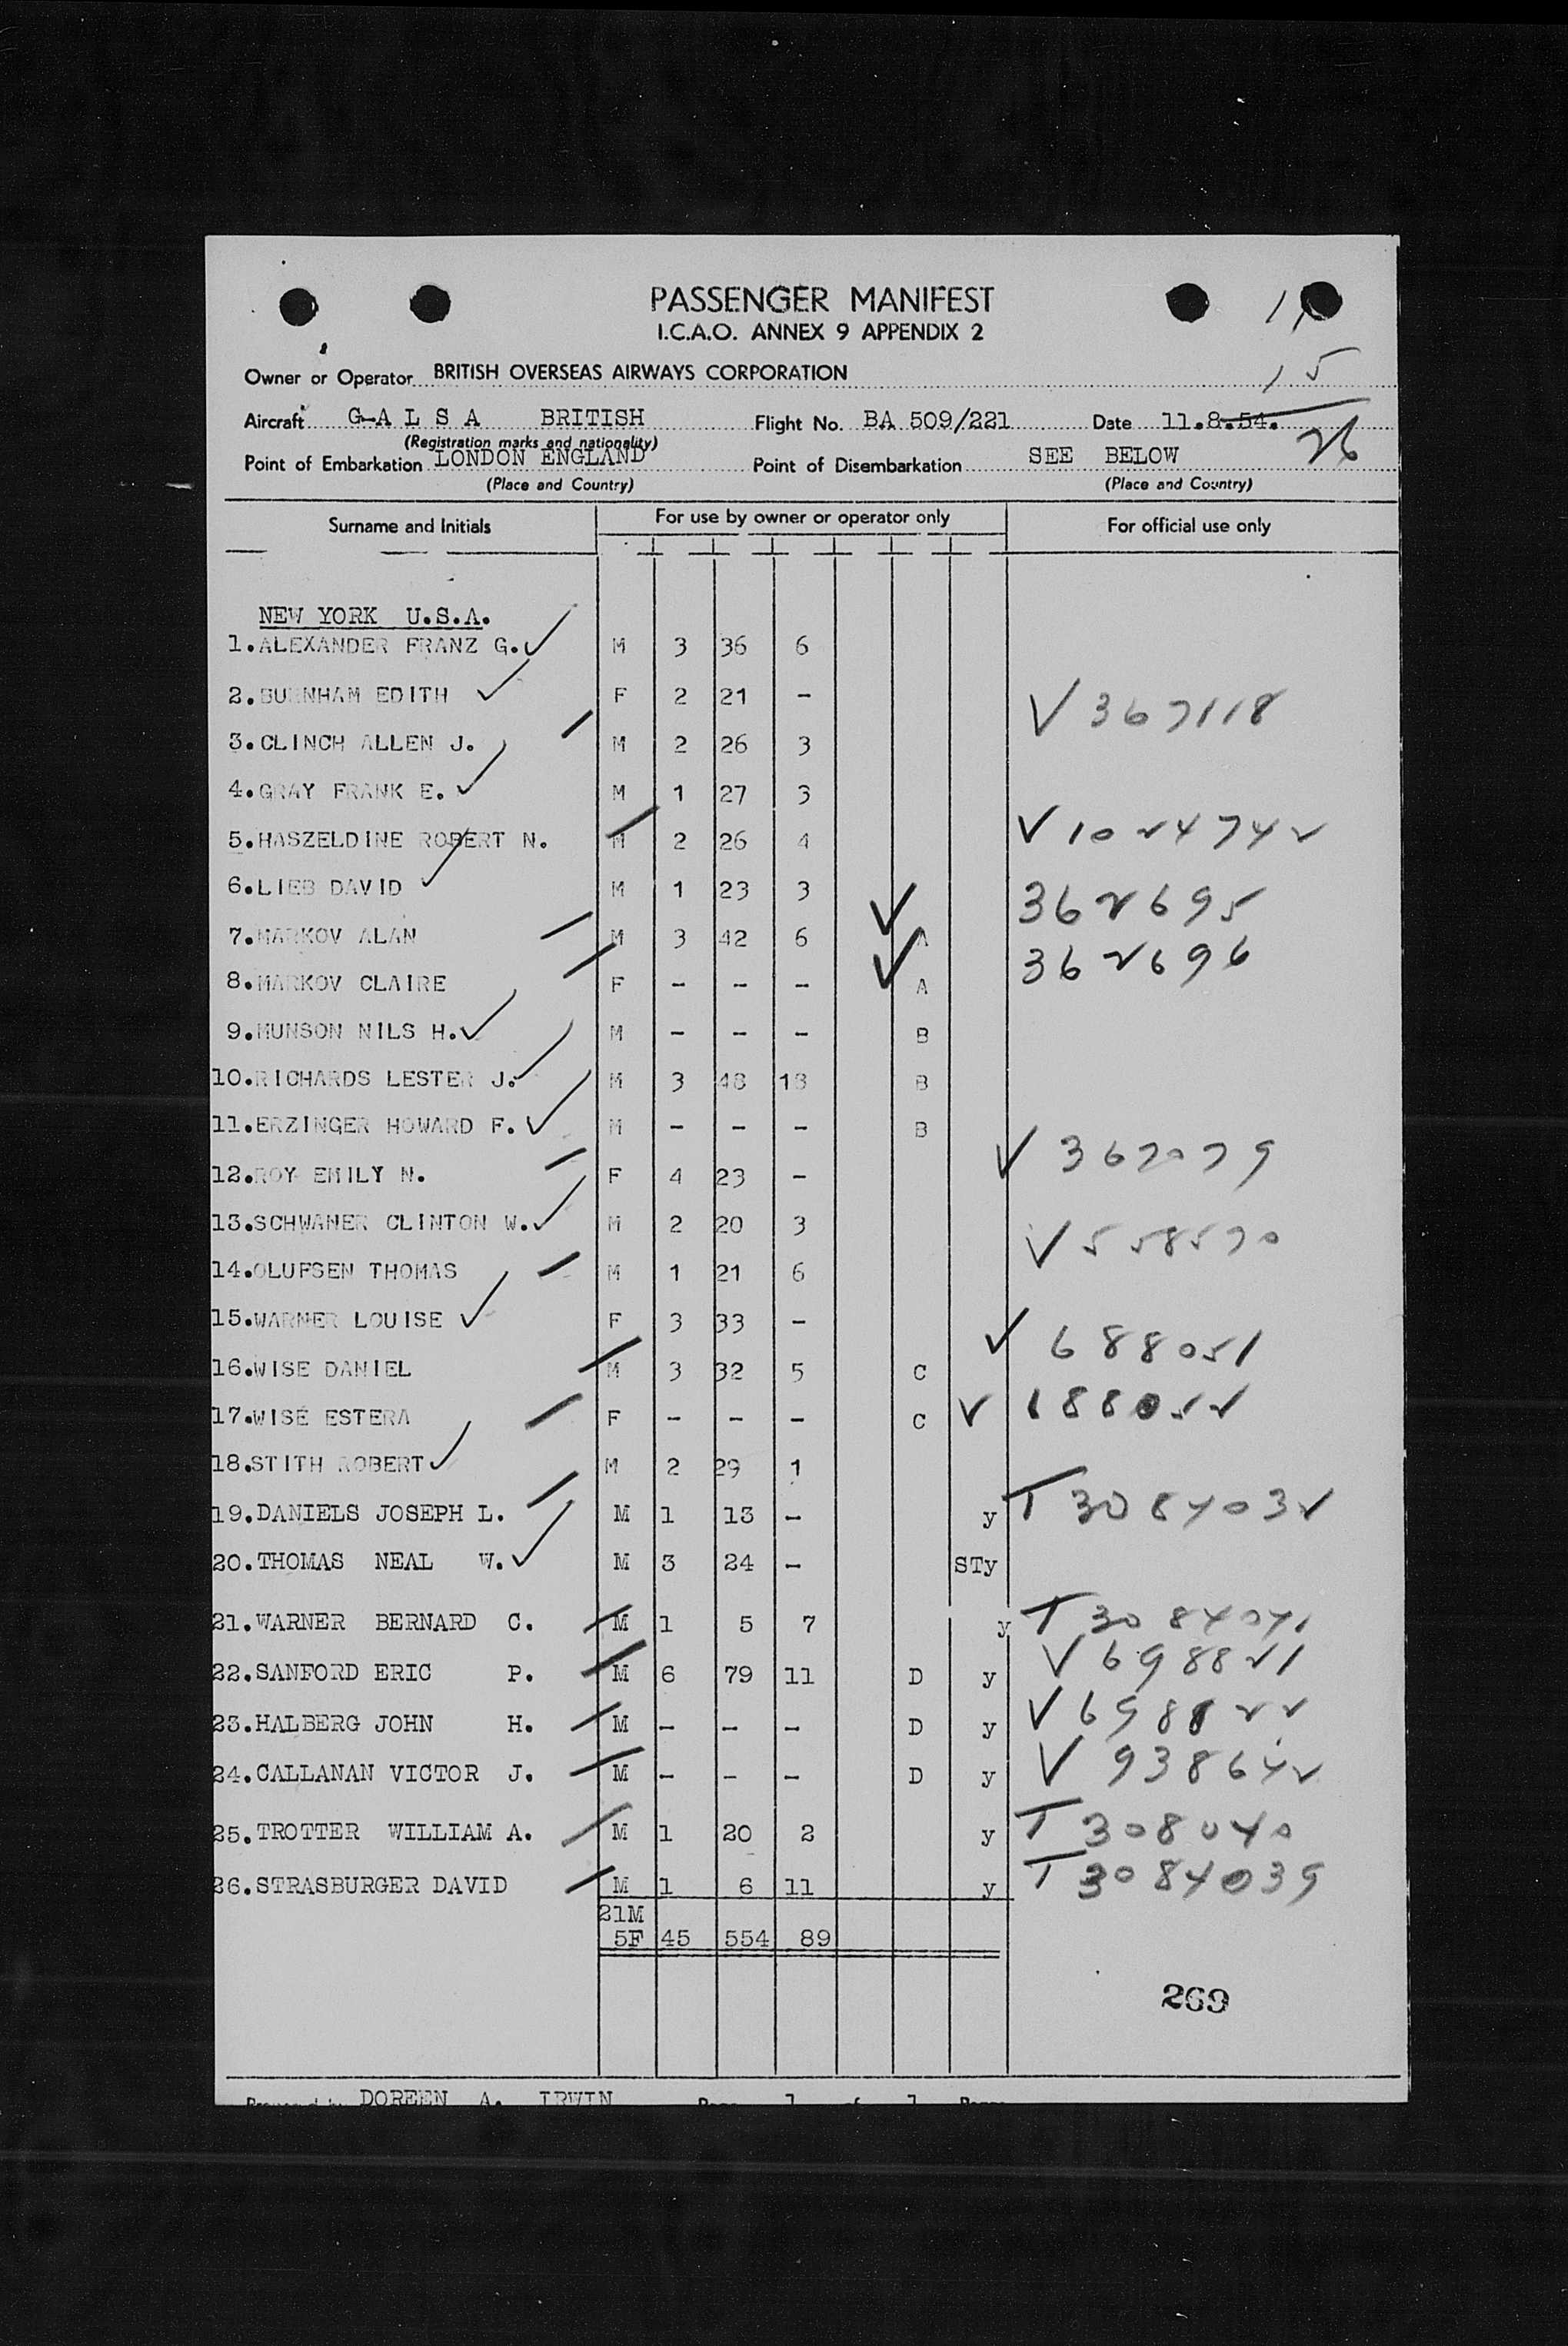 PASSENGER MANIFEST
I.C.A.O. ANNEX 9 APPENDIX 2
11
Owner or Operator BRITISH OVERSEAS AIRWAYS CORPORATION
15
Aircraft G-A L S A BRITISH Flight No. BA 509/221 Date 11.8.54.
(Registration marks and nationality)
26
Point of Embarkation LONDON ENGLAND Point of Disembarkation SEE BELOW
(Place and Country) (Place and Country)
Surname and Initials For use by owner or operator only For official use only
NEW YORK U.S.A.
1.ALEXANDER FRANZ G. M 3 36 6
2.BURNHAM EDITH F 2 21 - V 367118
3.CLINCH ALLEN J. M 2 26 3
4.GRAY FRANK E. M 1 27 3
5.HASZELDINE ROBERT N. M 2 26 4 V 1024742
6.LIEB DAVID M 1 23 3 362695
7.MARKOV ALAN M 3 42 6 A 362696
8.MARKOV CLAIRE F - - - A
9.MUNSON NILS H. M - - - B
10.RICHARDS LESTER J. M 3 48 18 B
11.ERZINGER HOWARD F. M - - - B
12.ROY EMILY N. F 4 23 - V 367079
13.SCHWANER CLINTON W. M 2 20 3 V 558570
14.OLUFSEN THOMAS M 1 21 6
15.WARNER LOUISE F 3 33 -
16.WISE DANIEL M 3 32 5 C 688051
17.WISE ESTERA F - - - C
18.STITH ROBERT M 2 29 1
19.DANIELS JOSEPH L. M 1 13 - y T 3084032
20.THOMAS NEAL W. M 3 24 - STy
21.WARNER BERNARD C. M 1 5 7 y T 3084041
22.SANFORD ERIC P. M 6 79 11 D y V 698821
23.HALBERG JOHN H. M - - - D y V 698822
24.CALLANAN VICTOR J. M - - - D y V 938642
25.TROTTER WILLIAM A. M 1 20 2 y T 308040
26.STRASBURGER DAVID M 1 6 11 y T 3084039
21M
5F 45 554 89
269
DOREEN A. IRWIN 1 1